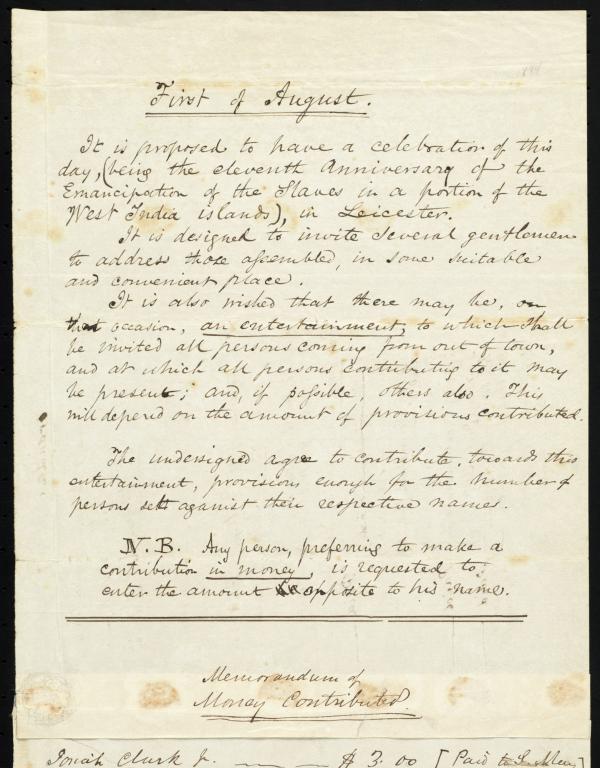 First of August.
It is proposed to have a celebration of this
day, (being the eleventh Anniversary of the
Emancipation of the Slaves in a portion of the
West India islands), in Leicester.
It is designed to invite several gentlemen
to address those assembled, in some suitable
and convenient place.
It is also wished that there may be, on
that occasion, an entertainment, to which shall
be invited all persons coming from out of town,
and at which all persons contributing to it may
be present; and, if possible, others also. This
will depend on the amount of provisions contributed.
The undersigned agree to contribute, towards this
entertainment, provisions enough for the number of
persons set against their respective names.
N.B. Any person, preferring to make a
contribution in money, is requested to
enter the amount opposite to his name.
Memorandum of
Money Contributed.
Josiah Clark Jr. — — $ 3.00 [Paid to